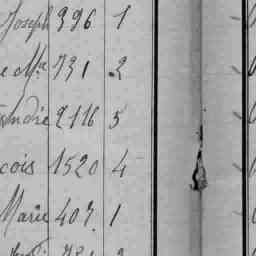 Joseph 396 1
e Me 731 2
André 2116 5
cois 1520 4
Marie 407. 1